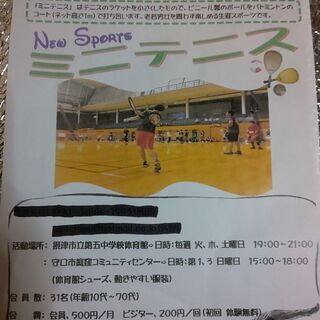 「ミニテニス」はテニスのラケットを小さくしたもので、ビニール製のボールをバドミントンの
コート(ネット高さ1m)で打ち合います。老若男女を問わず楽しめる生涯スポーツです。
NEW SPORTS
ミニテニス
活動場所: 摂津市立第五中学校体育館⇨日時:毎週 火、木、土曜日 19:00~21:00
: 守口市庭窪コミュニティセンター⇨日時:第1、3 日曜日 15:00~18:00
(体育館シューズ、動きやすい服装)
会 員 数: 31名(年齢10代~70代)
会 費: 会員、500円/月 ビジター、200円/回(初回 体験無料)